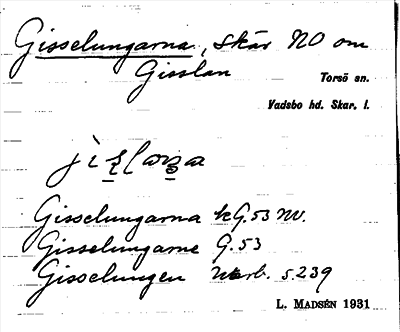 Gisselungarna, skär NO om
Gisslan
Torsö sn.
Vadsbo hd. Skar. l.
Gisselungarna kG.53 NV.
Gisselungarne G.53
Gisselungen s.239
L. MADSÉN 1931